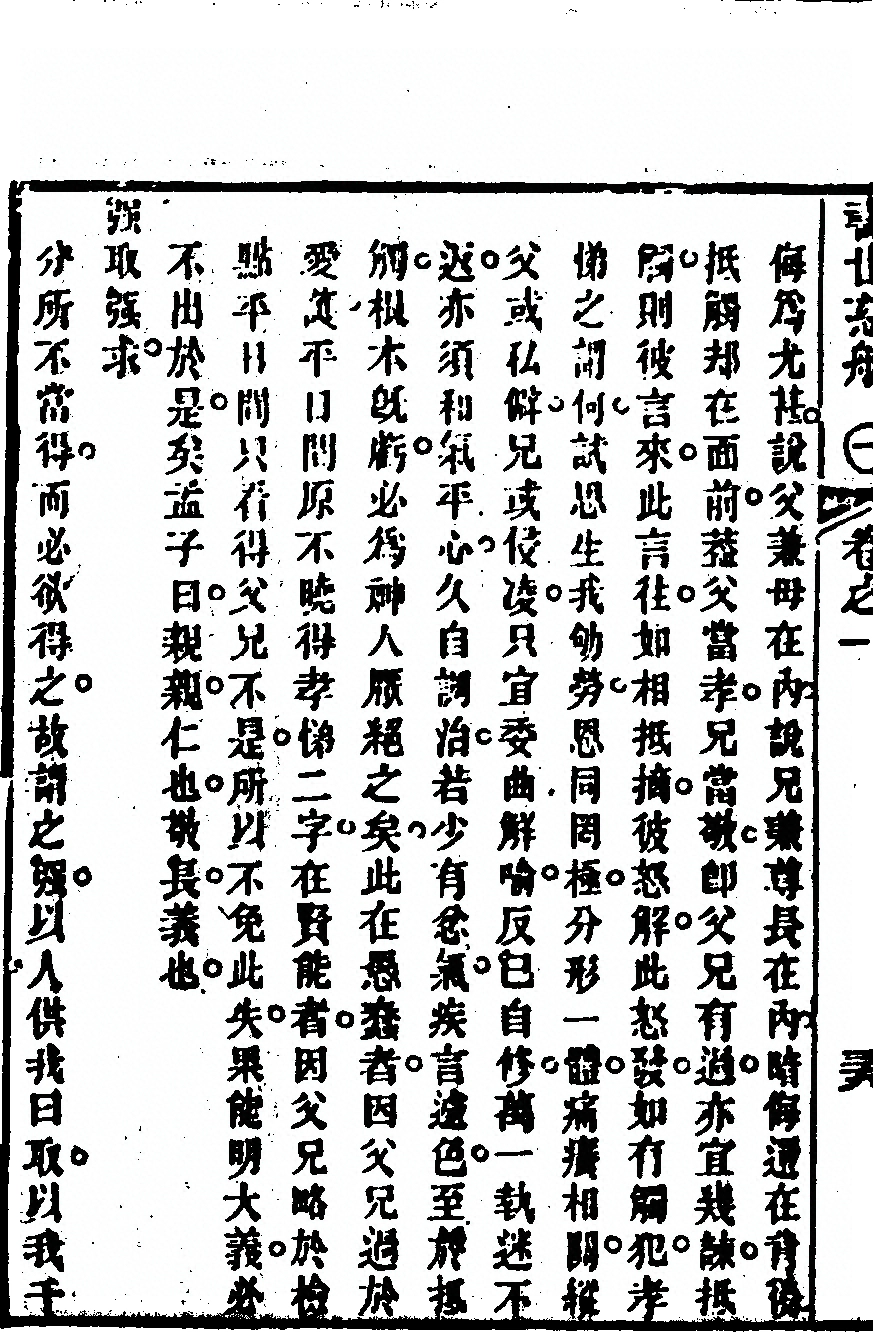 卷之一
侮爲尤甚說父兼母在內說兄兼尊長在內暗侮還在背後
抵觸却在面前葢父當孝兄當敬卽父兄有過亦宜幾諫抵
觸則彼言來此言往如相抵摘彼怒解此怒發如有觸犯孝
悌之謂何試思生我劬勞恩同罔極分形一體痛癢相關縱
父或私僻兄或侵凌只宜委曲解喻反已自修萬一執迷不
返亦須和氣平心久自調治若少有忿氣疾言遽色至於抵
觸根本旣虧必爲神人厭絕之矣此在愚蠢者因父兄過於
愛護平日間原不曉得孝悌二字在賢能者因父兄略於檢
點平日間只看得父兄不是所以不免此失果能明大義必
不出於是矣孟子曰親親仁也敬長義也
强取强求
分所不當得而必欲得之故謂之强以人供我曰取以我干